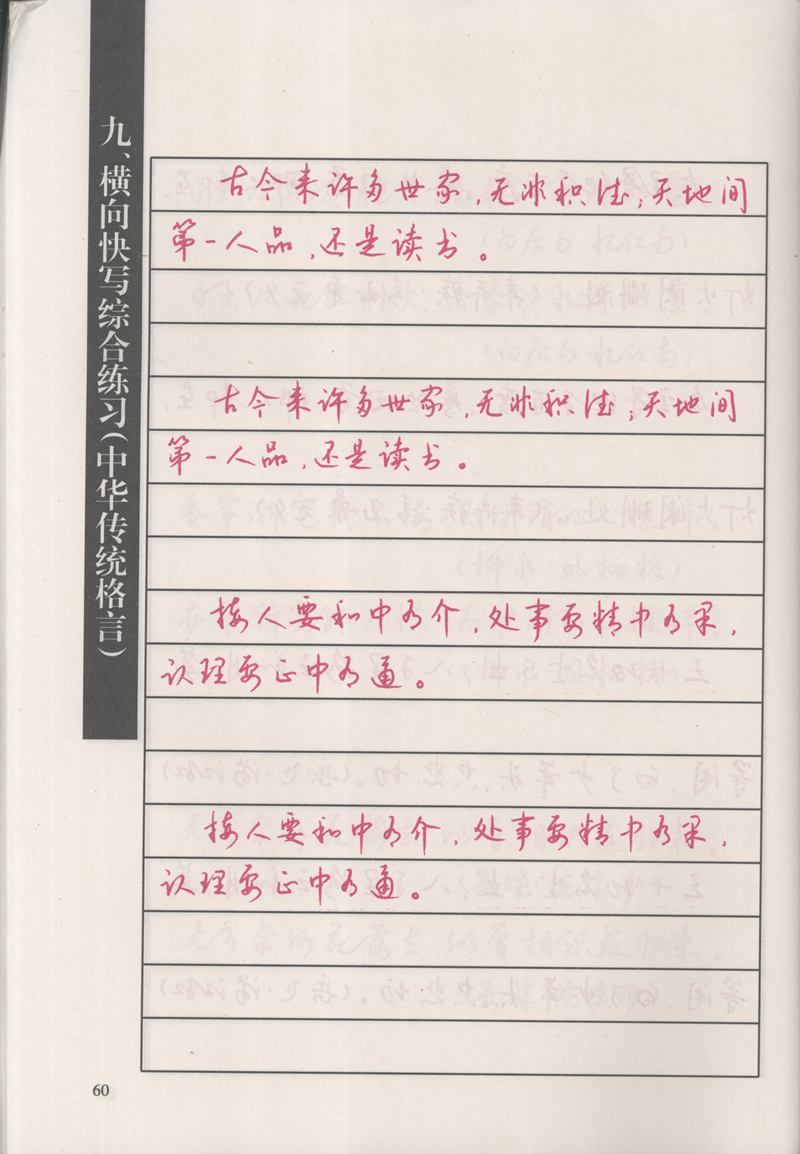 九、横向快写综合练习(中华传统格言)
古今来许多世家,无非积德;天地间
第一人品,还是读书。
古今来许多世家,无非积德;天地间
第一人品,还是读书。
接人要和中有介,处事要精中有果,
认理要正中有通。
接人要和中有介,处事要精中有果,
认理要正中有通。
60